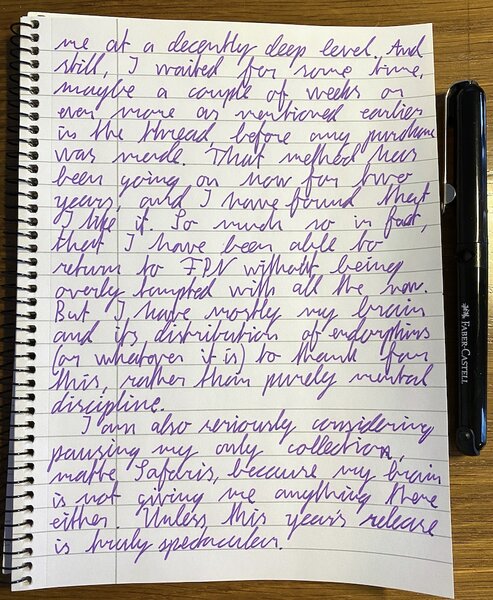 me at a decently deep level. And
still, I waited for some time,
maybe a couple of weeks or
even more as mentioned earlier
in the thread, before any purchase
was made. That method has
been going on now for two
years and I have found that
I like it. So much so in fact,
that I have been able to
return to FPN without being
overly tempted with all the new.
But I have mostly my brain
and its distribution of endorphins
(or whatever it is) to thank for
this, rather than purely mental
discipline.
I am also seriously considering
pausing my only collection,
matte Safaris, because my brain
is not giving me anything there
either. Unless, this year's release
is truly spectacular.
FABER-CASTELL